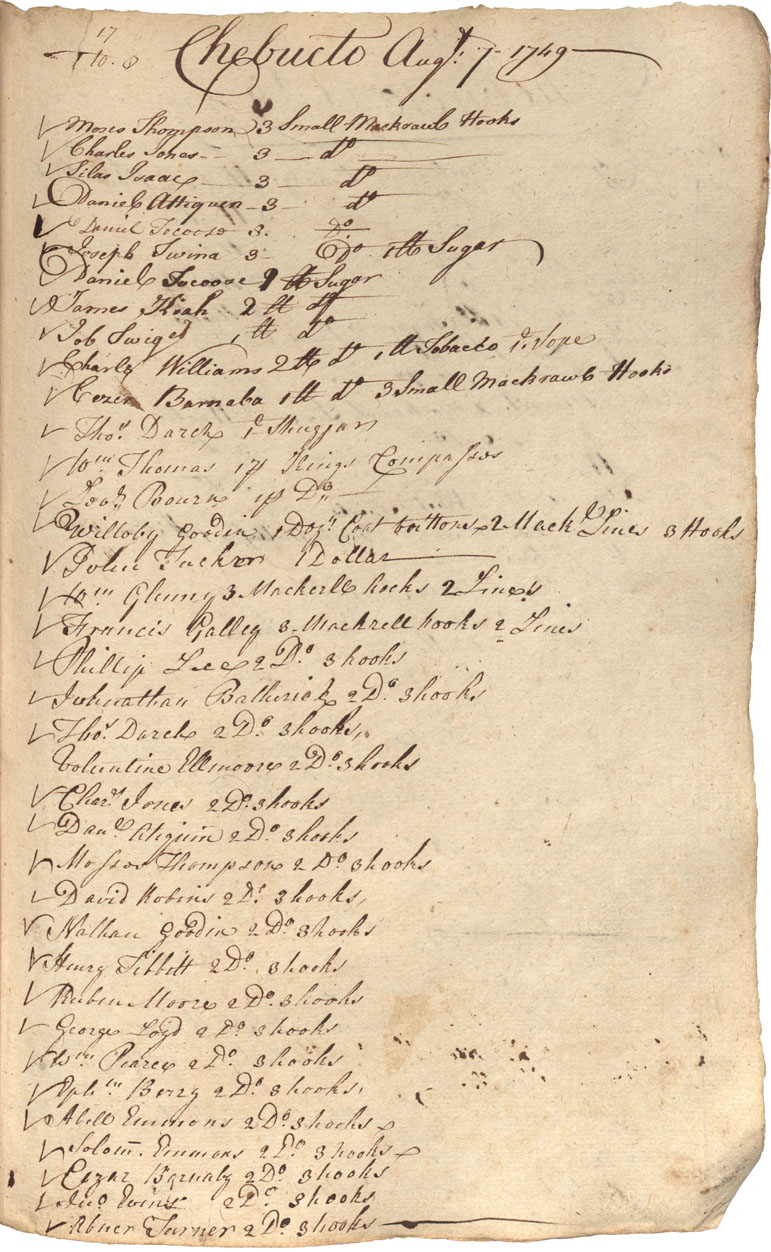 17
to. 8
Chebucto Augt. 7 - 1749
Moses Thompson 3 Small Mackrawl Hooks
Charles Jones - 3 - do
Silas Isaac - 3 - do
Daniel Attiquen - 3 - do
Daniel Tocooso 3. Do
Joseph Twina 3 - Do 1 tt Sugar
Daniel Tocoose 1 tt Sugar
James Noah 2 tt do
Job Swiges 1 tt do
Charles Williams 2 tt do 1 tt Tobacco 1d.
Cezer Barnaba 1 tt do 3 Small Mackrawl Hooks
Thos. Darck 1
Wm Thomas 1 ps Kings Compasses
Bourn 1 ps Do
Willoby Goodin 1 Dozn Coat buttons 2 Mackl Lines 3 Hooks
John Tucker 1 Dollar
Wm Glenny 3 Mackerll hocks 2 Lines
Francis Galley 3 Mackrell hooks 2 Lines
Phillip Lee 2 Do 3 hooks
Johnathan Batherick 2 Do 3 hooks
Thos Darck 2 Do 3 hooks,
Volentine Ellmoore 2 Do 3 hooks
Chars Jones 2 Do 3 hooks
Danel Atiquin 2 Do 3 hooks
Mosses Thompson 2 Do 3 hooks
David Robins 2 Do 3 hooks,
Nathan Goodin 2 Do 3 hooks
Henry Tibbitt 2 Do. 3 hooks
Ruben Moore 2 Do 3 hooks
George Loyd 2 Do 3 hooks
Wm Pearce 2 Do 3 hooks
Ephm Berry 2 Do 3 hooks,
Abell Emmons 2 Do 3 hooks
Solom. Emmons 2 Do 3 hooks
Cezar Barnaby 2 Do 3 hooks
Jno Evins 2 Do 3 hooks
Abner Turner 2 Do 3 hooks